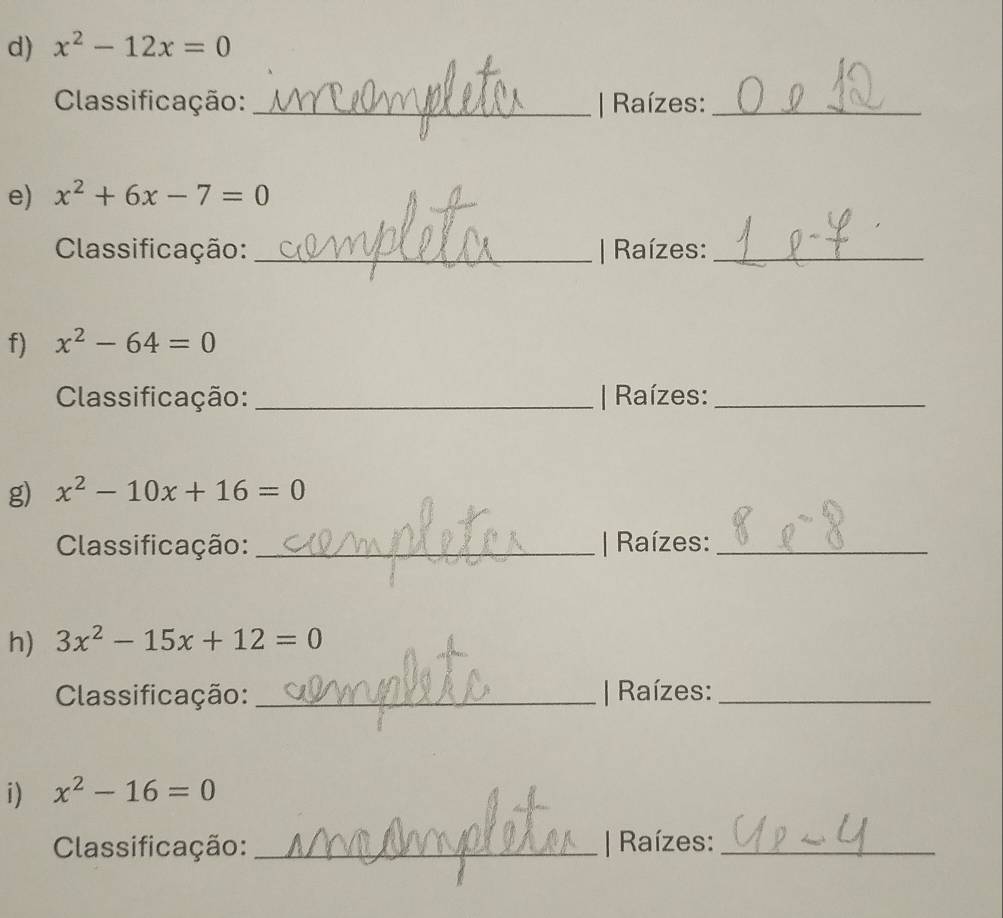 d) x² − 12x = 0
Classificação: incompleta | Raízes: 0 e 12
e) x² + 6x − 7 = 0
Classificação: completa | Raízes: 1 e -7
f) x² − 64 = 0
Classificação: | Raízes:
g) x² − 10x + 16 = 0
Classificação: completa | Raízes: 8 e -8
h) 3x² − 15x + 12 = 0
Classificação: completa | Raízes:
i) x² − 16 = 0
Classificação: incompleta | Raízes: 4 e -4